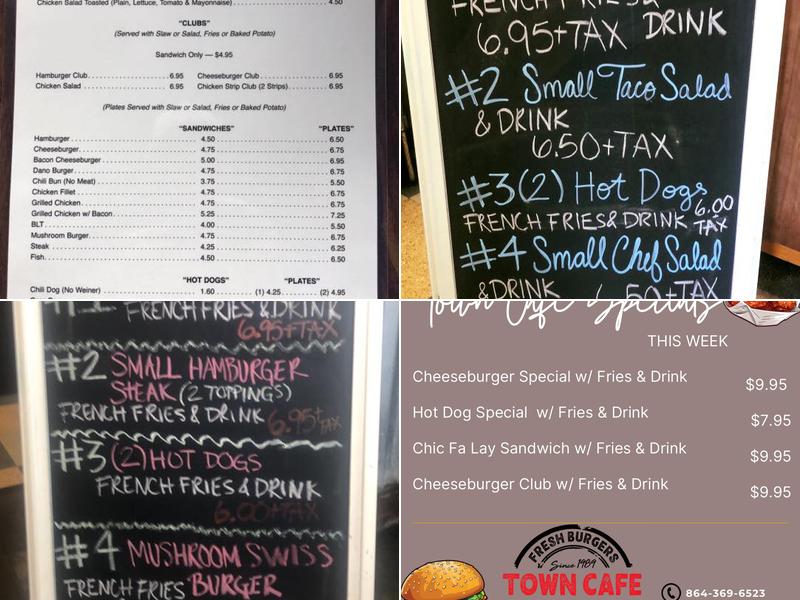 Chicken Salad Toasted (Plain, Lettuce, Tomato & Mayonnaise) 4.50
"CLUBS"
(Served with Slaw or Salad, Fries or Baked Potato)
Sandwich Only — $4.95
Hamburger Club 6.95 Cheeseburger Club 6.95
Chicken Salad 6.95 Chicken Strip Club (2 Strips) 6.95
(Plates Served with Slaw or Salad, Fries or Baked Potato)
"SANDWICHES" "PLATES"
Hamburger 4.50 6.50
Cheeseburger 4.75 6.75
Bacon Cheeseburger 5.00 6.95
Dano Burger 4.75 6.75
Chili Bun (No Meat) 3.75 5.50
Chicken Fillet 4.75 6.75
Grilled Chicken 4.75 6.75
Grilled Chicken w/ Bacon 5.25 7.25
BLT 4.00 5.50
Mushroom Burger 4.75 6.75
Steak 4.25 6.25
Fish 4.50 6.50
"HOT DOGS" "PLATES"
Chili Dog (No Weiner) 1.60 (1) 4.25 (2) 4.95
FRENCH FRIES &
6.95+TAX DRINK
#2 Small Taco Salad
& DRINK
6.50+TAX
#3(2) Hot Dogs
FRENCH FRIES & DRINK 6.00
TAX
#4 Small Chef Salad
& DRINK 6.50+TAX
FRENCH FRIES & DRINK
6.95+TAX
#2 SMALL HAMBURGER
STEAK (2 TOPPINGS)
FRENCH FRIES & DRINK 6.95+TAX
#3 (2) HOT DOGS
FRENCH FRIES & DRINK
6.00+TAX
#4 MUSHROOM SWISS
FRENCH FRIES BURGER
Town Cafe Specials
THIS WEEK
Cheeseburger Special w/ Fries & Drink $9.95
Hot Dog Special w/ Fries & Drink $7.95
Chic Fa Lay Sandwich w/ Fries & Drink $9.95
Cheeseburger Club w/ Fries & Drink $9.95
FRESH BURGERS
Since 1909
TOWN CAFE
864-369-6523